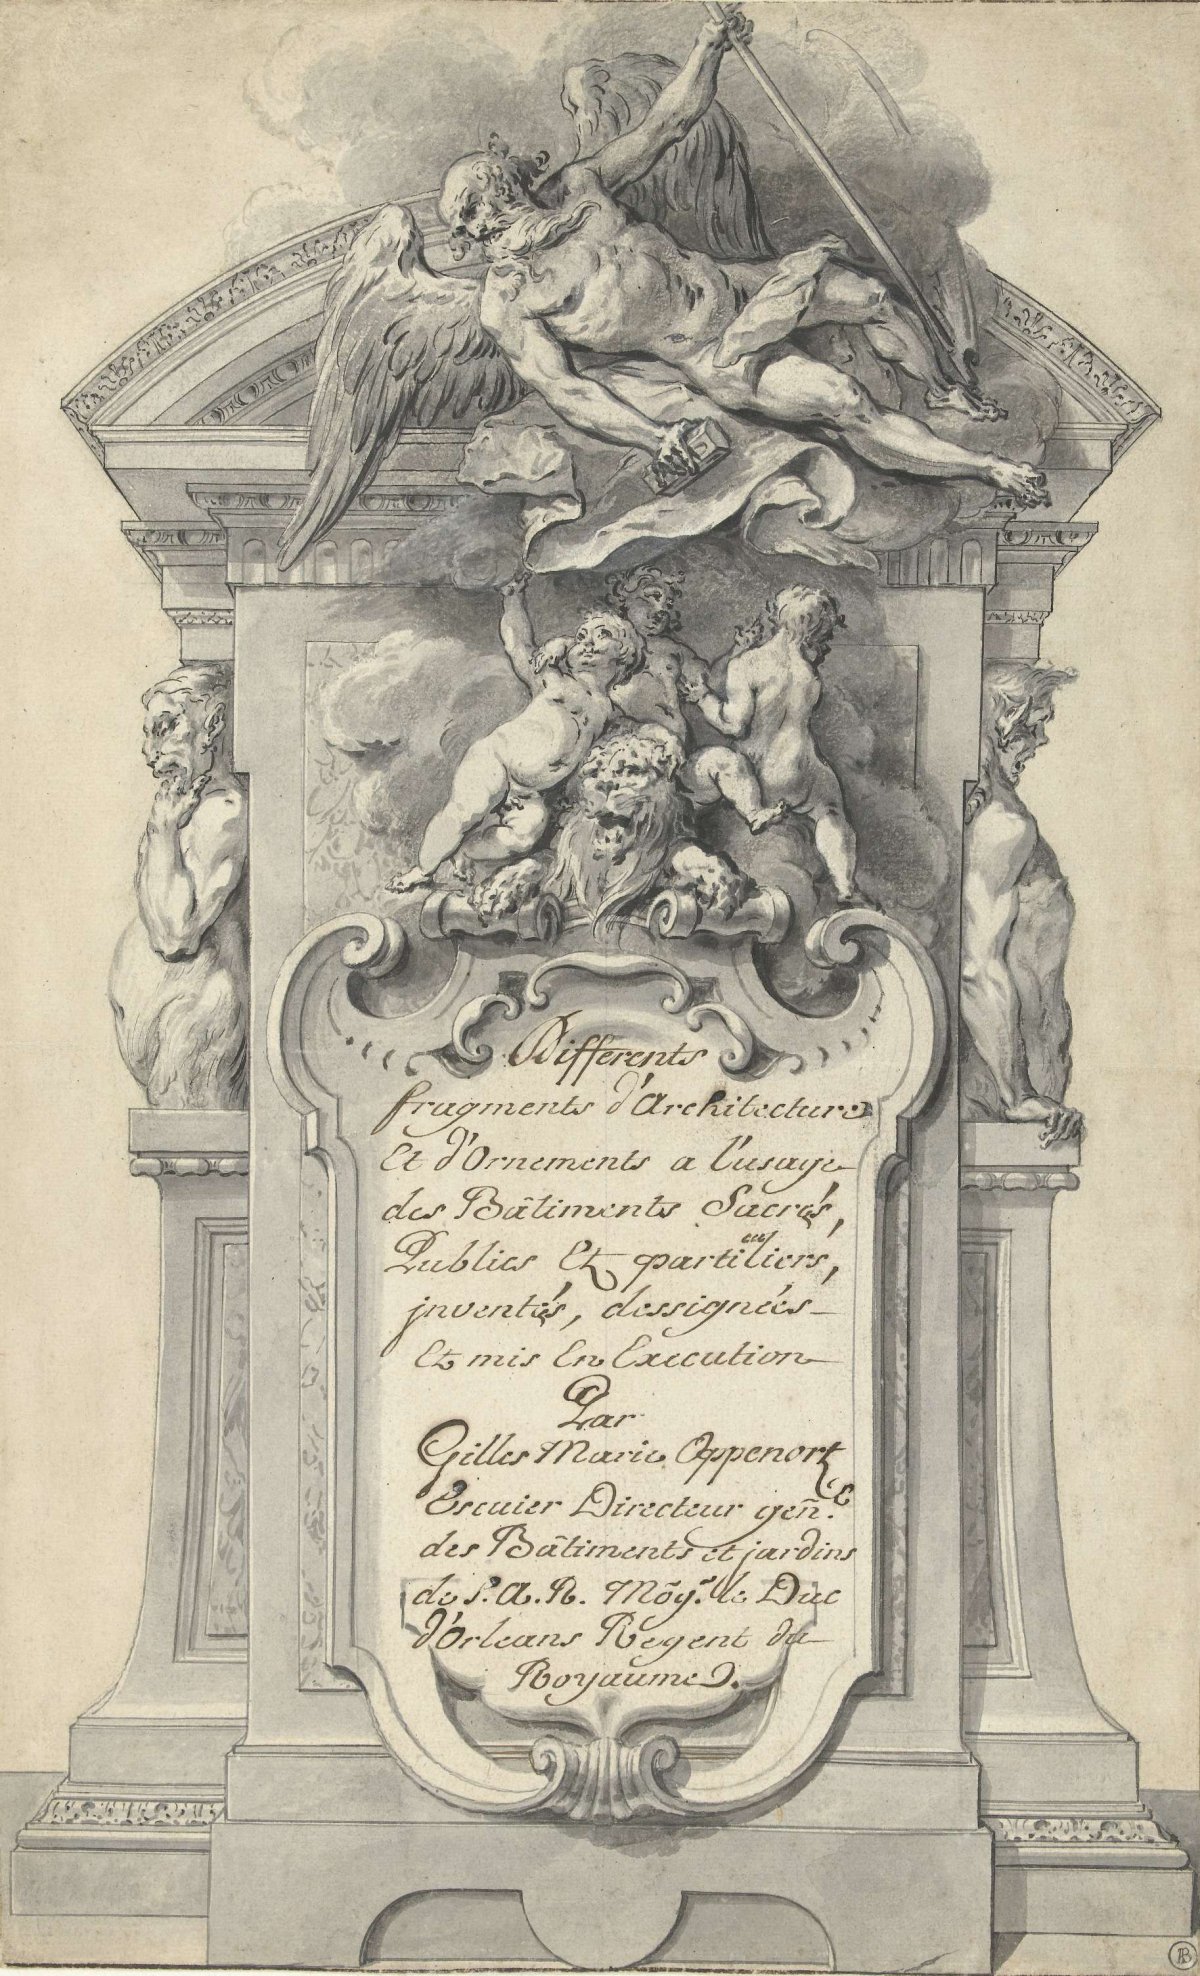 Differents
fragments d'Architecture
Et d'Ornements a l'usage
des Bâtiments Sacrés,
Publics Et partiliers,
cu
jnventés, dessignées
Et mis En Execution
Par
Gilles Marie Oppenort
Escuier Directeur geñ.
des Bâtiments et jardins
de S. A. R. Moȳ.r le Duc
d'Orleans Regent du
Royaume.
B